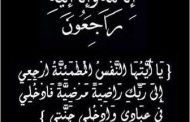 إنا لله وإنا إليه
راجعون
{ يا أيتها النفس المطمئنة ارجعي
إلى ربك راضية مرضية فادخلي
في عبادي وادخلي جنتي }